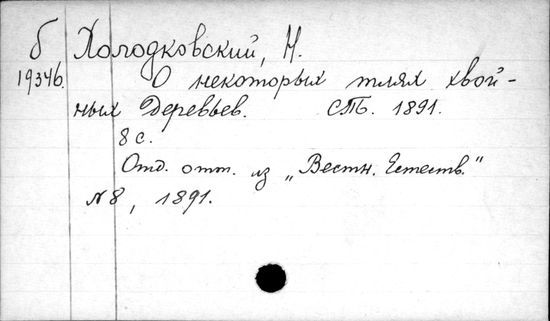 б Холодковский, Н.
19346. О некоторых тлях хвой-
ных деревьев. СПБ. 1891.
8 с.
Отд. отт. из „Вестн. Естеств."
№ 8, 1891.